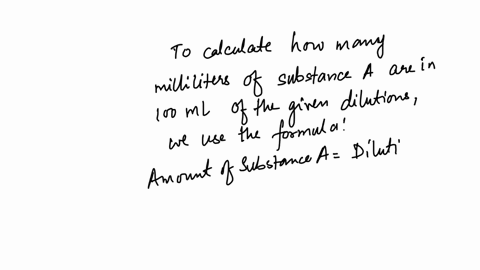 To calculate how many
milliliters of substance A are in
100 mL of the given dilutions,
we use the formula:
Amount of Substance A = Diluti